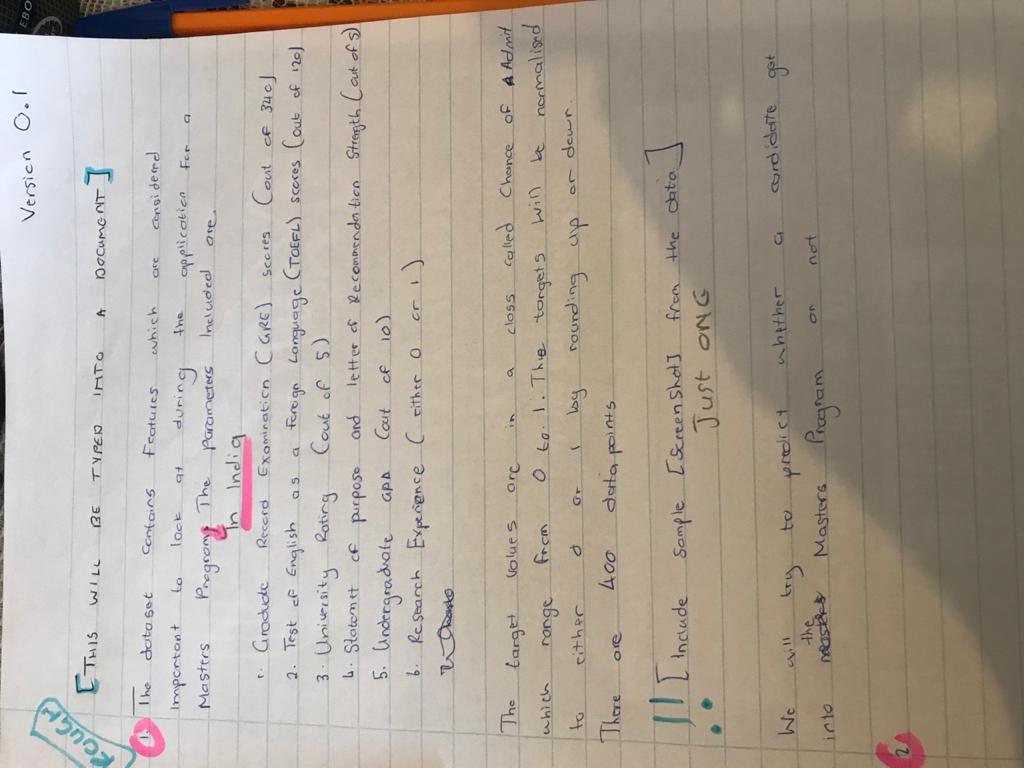 Version 0.1
ROUGH
[THIS WILL BE TYPED INTO A DOCUMENT]
1. The dataset contains features which are considered
important to look at during the application for a
Masters Program. The parameters included are
In India
1. Graduate Record Examination (GRE) scores (out of 340)
2. Test of English as a Foreign Language (TOEFL) scores (out of 120)
3. University Rating (out of 5)
4. Statemtt of purpose and letter of Recommendation Strength (out of 5)
5. Undergraduate GPA (out of 10)
6. Research Experience (either 0 or 1)
The target values are in a class called Chance of Admit
which range from 0 to 1. The targets will be normalised
to either 0 or 1 by rounding up or down.
There are 400 data points
!! [Include sample [Screenshot] from the data]
JUST ONE
We will try to predict whether a candidate got
into the Masters Program or not
2